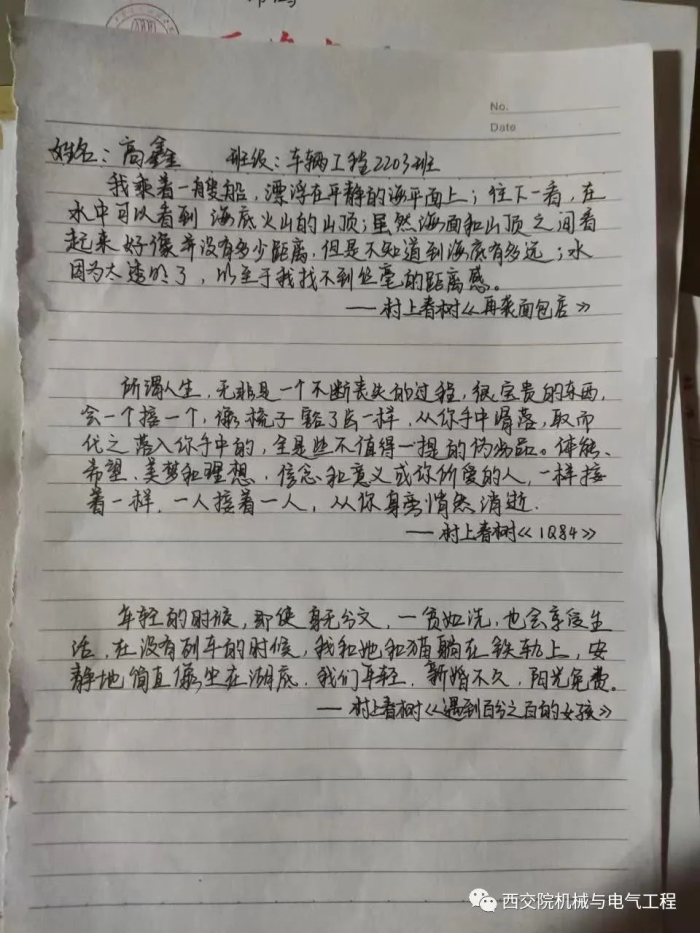 No.
Date
姓名：高鑫 班级：车辆工程2203班
我乘着一艘船，漂浮在平静的海平面上；往下一看，在
水中可以看到海底火山的山顶；虽然海面和山顶之间看
起来好像并没有多少距离，但是不知道到海底有多远；水
因为太透明了，以至于我找不到丝毫的距离感。
——村上春树《再袭面包店》
所谓人生，无非是一个不断丧失的过程，很宝贵的东西，
会一个接一个，像梳子豁了齿一样，从你手中滑落，取而
代之落入你手中的，全是些不值得一提的伪劣品。体能、
希望、美梦和理想、信念和意义或你所爱的人，一样接
着一样，一人接着一人，从你身旁悄然消逝.
——村上春树《1Q84》
年轻的时候，即使身无分文，一贫如洗，也会享受生
活，在没有列车的时候，我和她和猫躺在铁轨上，安
静地简直像坐在湖底，我们年轻，新婚不久，阳光免费。
——村上春树《遇到百分之百的女孩》
西交院机械与电气工程